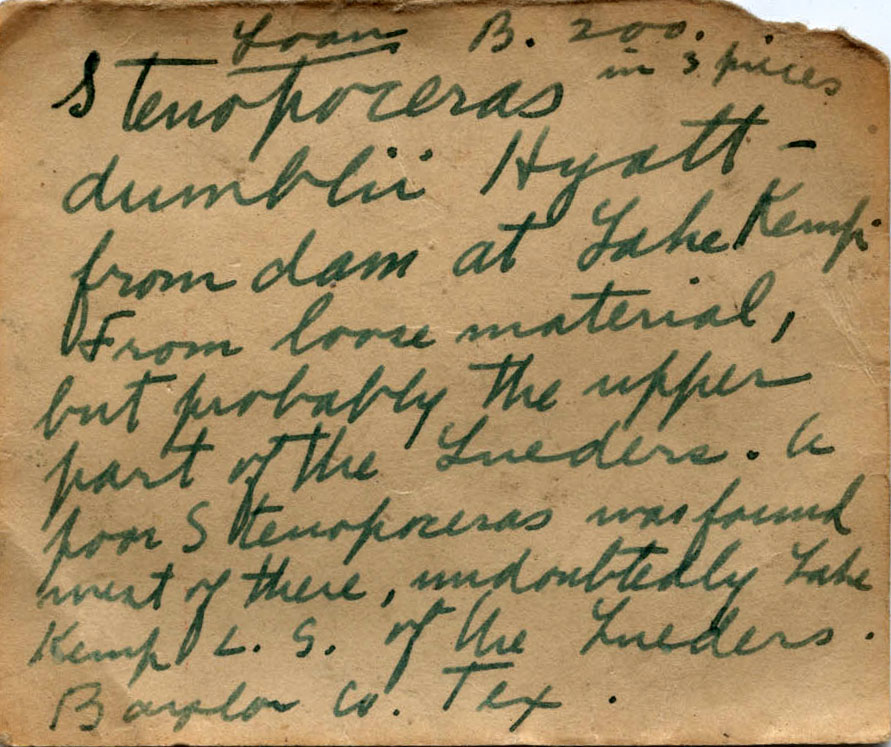 Loan B. 200.
in 3 pieces
Stenopoceras
dumblii Hyatt -
from dam at Lake Kemp.
From loose material,
but probably the upper
part of the Lueders. A
poor Stenopoceras was found
west of there, undoubtedly Lake
Kemp L. S. of the Lueders.
Baylor Co. Tex.